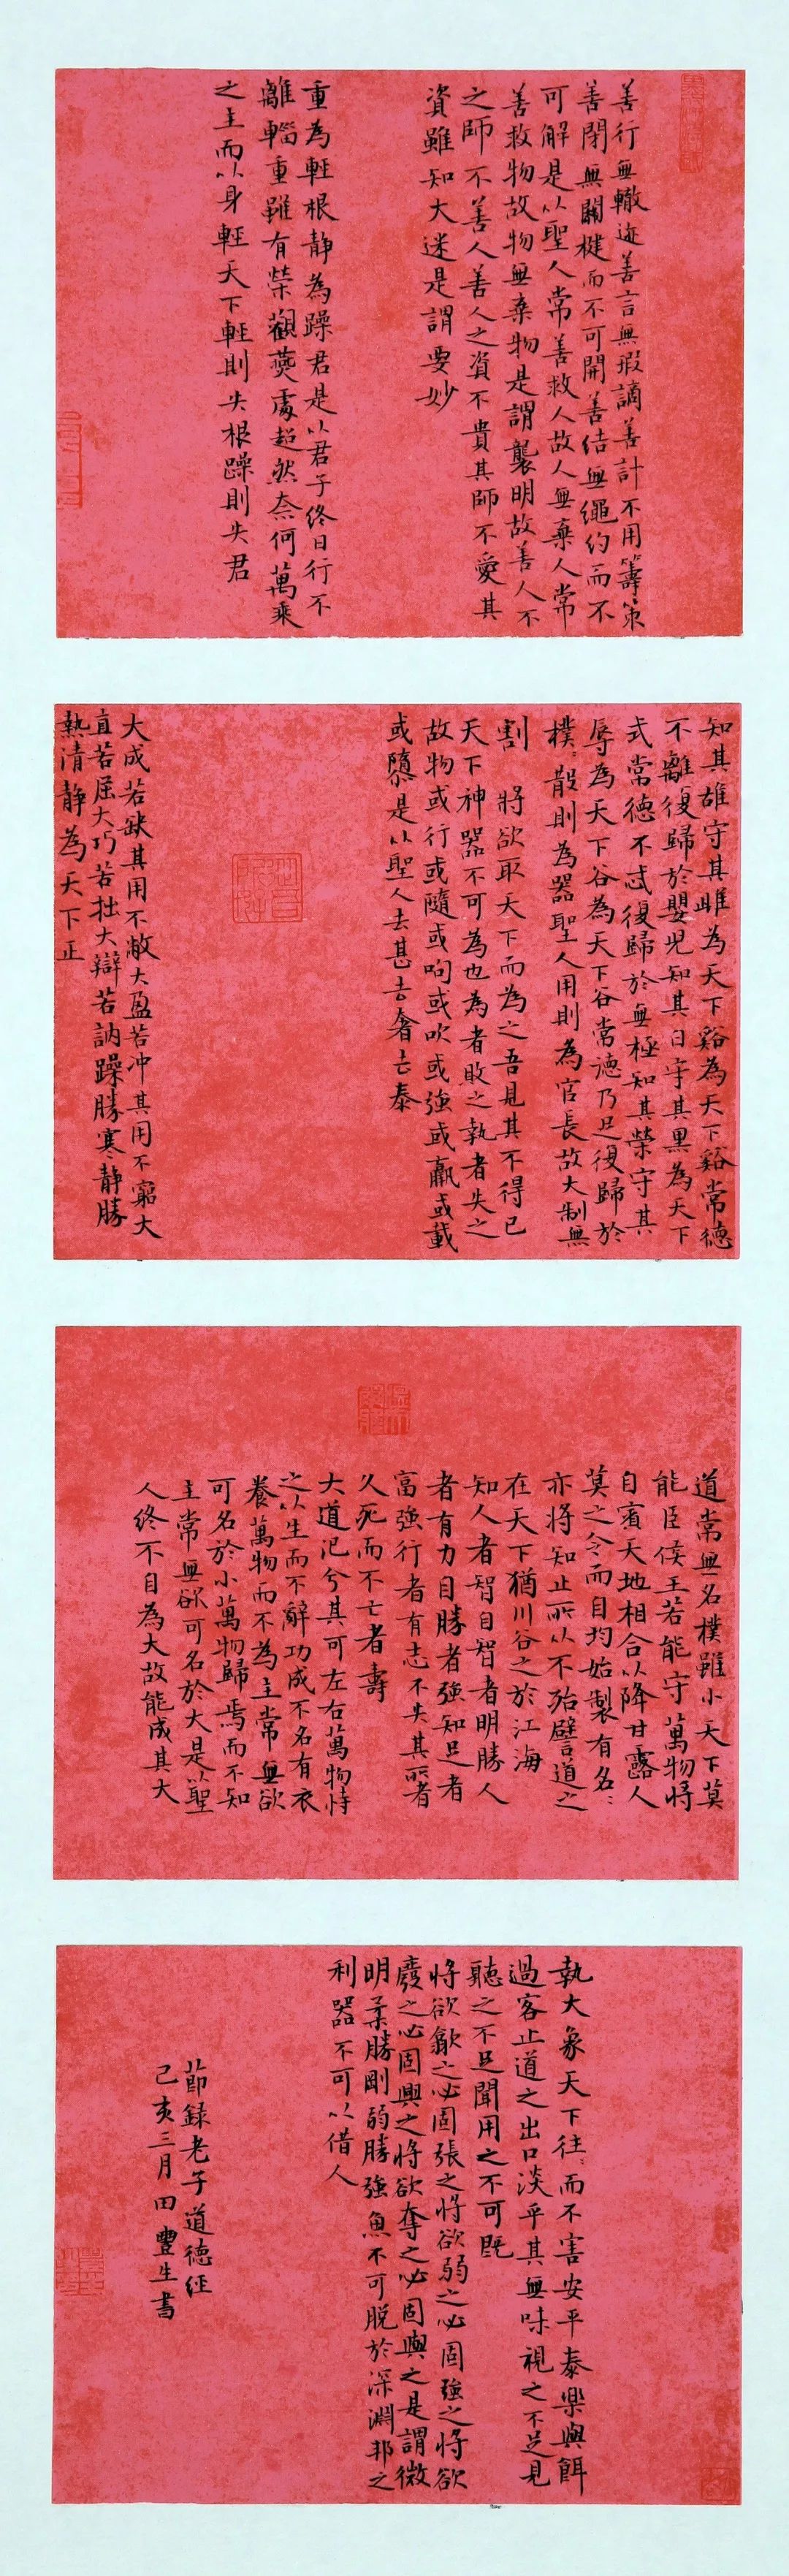 善行無轍迹善言無瑕謫善計不用籌策
善閉無關楗而不可開善结無繩约而不
可解是以聖人常善救人故人無棄人常
善救物故物無棄物是謂襲明故善人不
之師不善人善人之資不貴其師不愛其
資雖知大迷是謂要妙
重為輕根静為躁君是以君子终日行不
離輜重雖有榮觀燕處超然奈何萬乘
之主而以身輕天下輕則失根躁則失君
知其雄守其雌為天下谿為天下谿常德
不離復歸於嬰兒知其白守其黑為天下
式常德不忒復歸於無極知其榮守其
辱為天下谷為天下谷常德乃足復歸於
樸〻散則為器聖人用則為官長故大制無
割 將欲取天下而為之吾見其不得已
天下神器不可為也為者敗之執者失之
故物或行或隨或呴或吹或強或羸或載
或隳是以聖人去甚去奢去泰
大成若缺其用不敝大盈若冲其用不窮大
直若屈大巧若拙大辯若訥躁勝寒静勝
熱清静為天下正
道常無名樸雖小天下莫
能臣侯王若能守萬物將
自賓天地相合以降甘露人
莫之令而自均始製有名〻
亦將知止所以不殆譬道之
在天下猶川谷之於江海
知人者智自智者明勝人
者有力自勝者強知足者
富強行者有志不失其所者
久死而不亡者壽
大道汜兮其可左右萬物恃
之以生而不辭功成不名有衣
養萬物而不為主常無欲
可名於小萬物歸焉而不知
主常無欲可名於大是以聖
人终不自為大故能成其大
執大象天下往〻而不害安平泰樂與餌
過客止道之出口淡乎其無味視之不足見
聽之不足聞用之不可既
將欲歙之必固張之將欲弱之必固強之將欲
廢之必固興之將欲奪之必固與之是謂微
明柔勝剛弱勝強魚不可脱於深淵邦之
利器不可以借人
節録老子道德经
己亥三月田豐生書